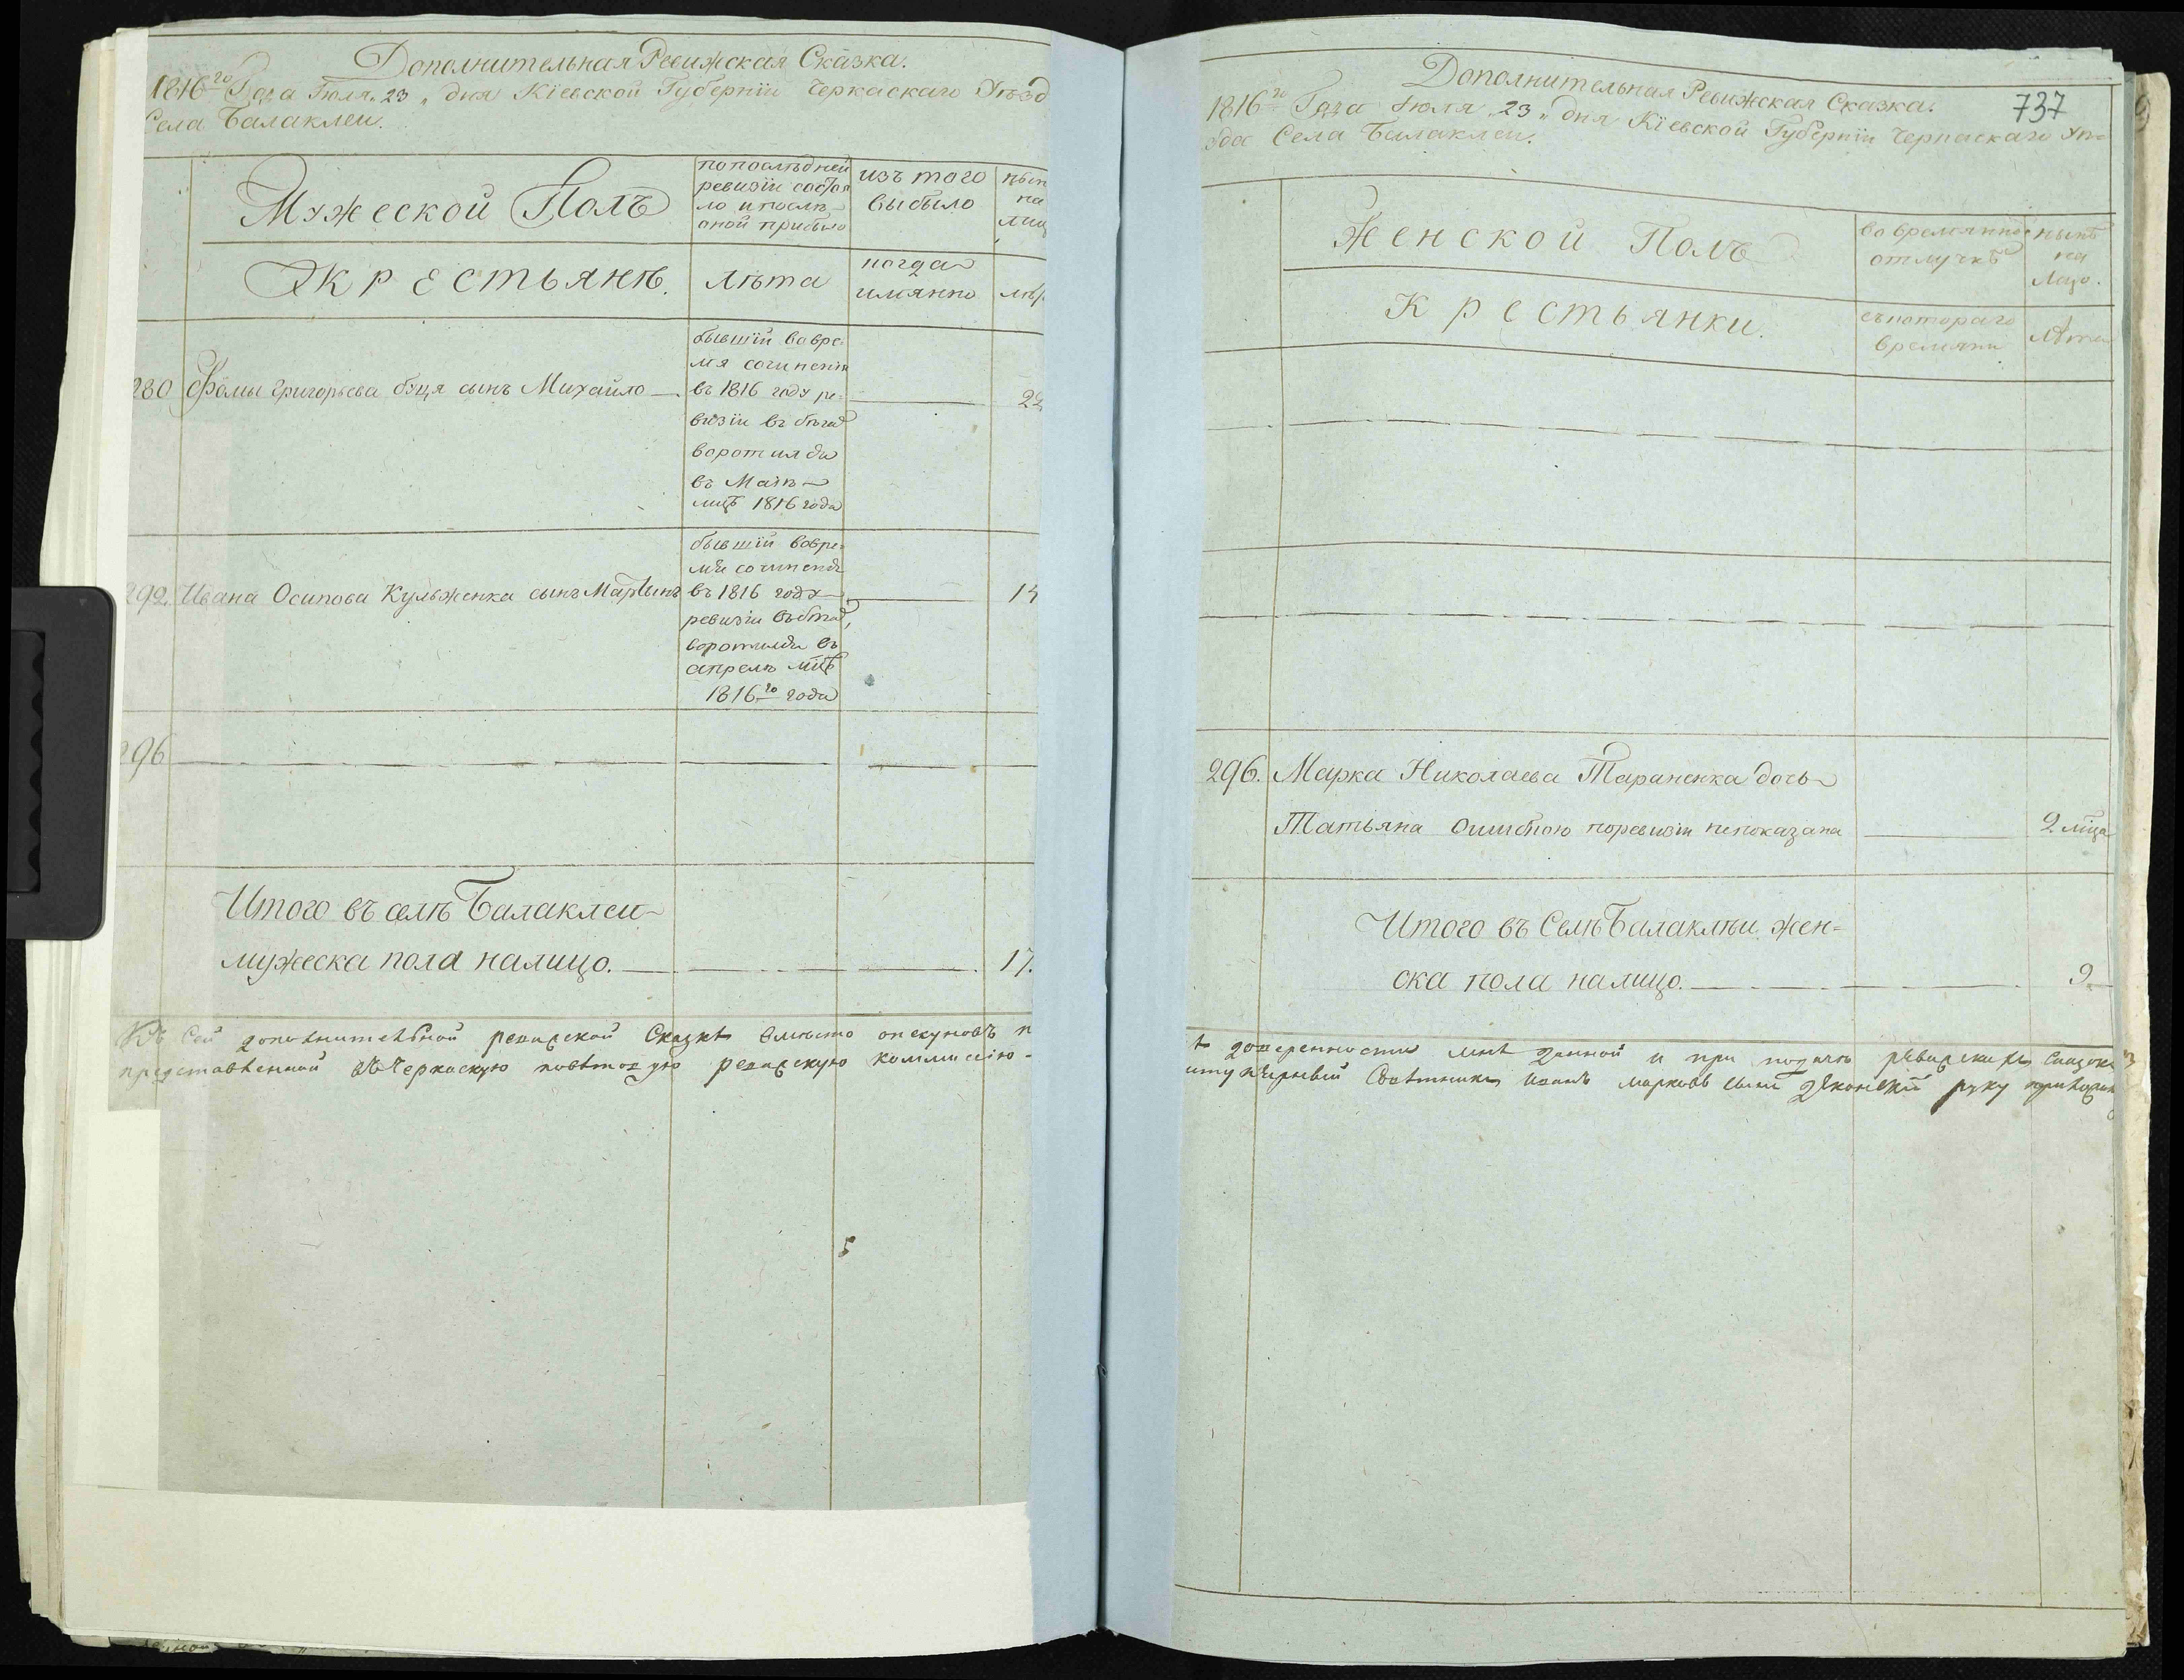 Дополнительная Ревижская Сказка.
1816го Года Іюля 23 дня Кіевской Губерніи Черкаскаго Уѣзд
Села Балаклеи.
Мужеской Полъ
попослѣдней
ревизіи состоя
ло и послѣ
оной прибыло
изъ того
выбыло
нын
на
лиц
Крестьянѣ.
лѣта
когда
имянно
лѣт
280 Фомы Григорьева буця сынъ Михайло
бывшій вовре
мя сочиненія
въ 1816 году ре
визіи въ бѣгах
воротился
въ Маіи
мцѣ 1816 года
22
292. Ивана Осипова Кульженка сынъ Мартынъ
бывшій вовре
мя сочиненія
въ 1816 году
ревизіи въ бѣгах,
воротился въ
апрелѣ мцѣ
1816го года
14
296
Итого въ селѣ Балаклеи
мужеска пола налицо. 17.
Къ Сей дополнительной ревизской Сказкѣ вмѣсто опекуновъ п
представленной въ Черкаскую повѣтовую ревизскую коммисію
737
Дополнительная Ревижская Сказка.
1816го Года Іюля 23 дня Кіевской Губерніи Черкаскаго Уѣ=
зда Села Балаклеи.
Женской Полъ
во временной
отлучкѣ
нынѣ
на
лицо.
Крестьянки.
съ котораго
времяни
лѣта
296. Марка Николаева Тараненка дочь
Татьяна Ошибкою поревизіи непоказана 2 мца
Итого въ Селѣ Балаклѣи жен=
ска пола налицо. 9
доверенности мнѣ данной и при подачѣ ревизских Сказокъ
Советникъ Иванъ Марковъ сынъ руку приложилъ